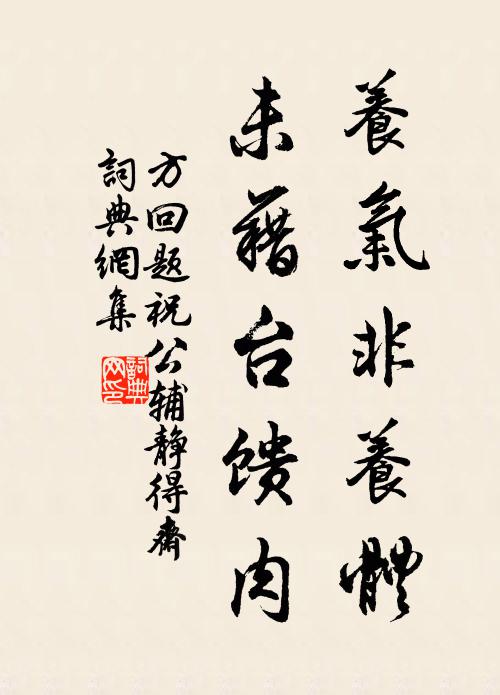 養氣非養體
未藉台馈肉
方回题祝公辅静得齋
詞典網集
詞典網印